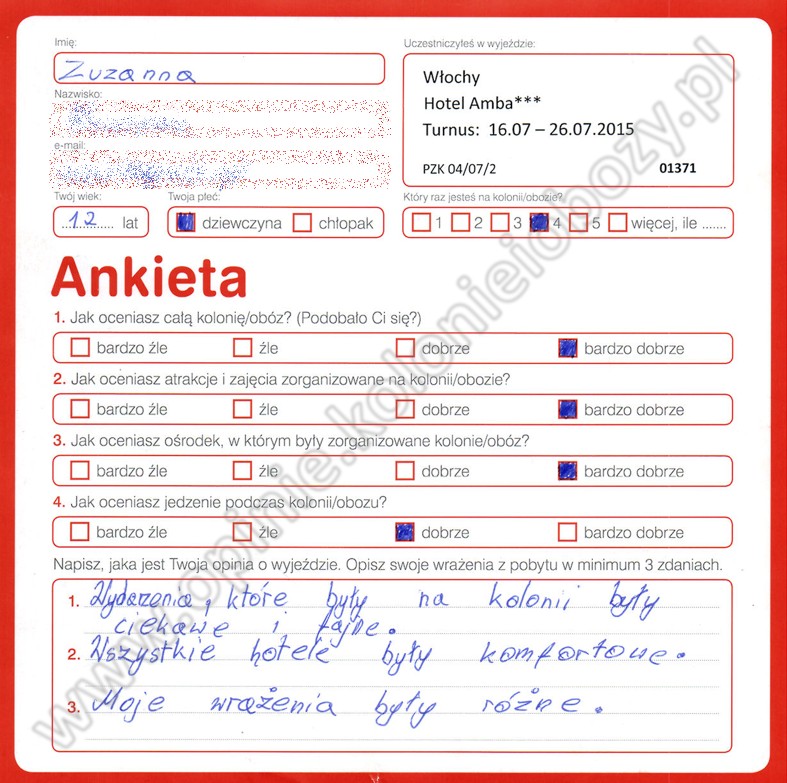 Imię:
Zuzanna
Nazwisko:
e-mail:
Uczestniczyłeś w wyjeździe:
Włochy
Hotel Amba***
Turnus: 16.07 – 26.07.2015
PZK 04/07/2 01371
Twój wiek: Twoja płeć: Który raz jesteś na kolonii/obozie?
12 lat dziewczyna chłopak 1 2 3 4 5 więcej, ile .......
Ankieta
1. Jak oceniasz całą kolonię/obóz? (Podobało Ci się?)
bardzo źle źle dobrze bardzo dobrze
2. Jak oceniasz atrakcje i zajęcia zorganizowane na kolonii/obozie?
bardzo źle źle dobrze bardzo dobrze
3. Jak oceniasz ośrodek, w którym były zorganizowane kolonie/obóz?
bardzo źle źle dobrze bardzo dobrze
4. Jak oceniasz jedzenie podczas kolonii/obozu?
bardzo źle źle dobrze bardzo dobrze
Napisz, jaka jest Twoja opinia o wyjeździe. Opisz swoje wrażenia z pobytu w minimum 3 zdaniach.
1. Wydarzenia, które były na kolonii były
ciekawe i fajne.
2. Wszystkie hotele były komfortowe.
3. Moje wrażenia były różne.
www.opinie.kolonieiobozy.pl